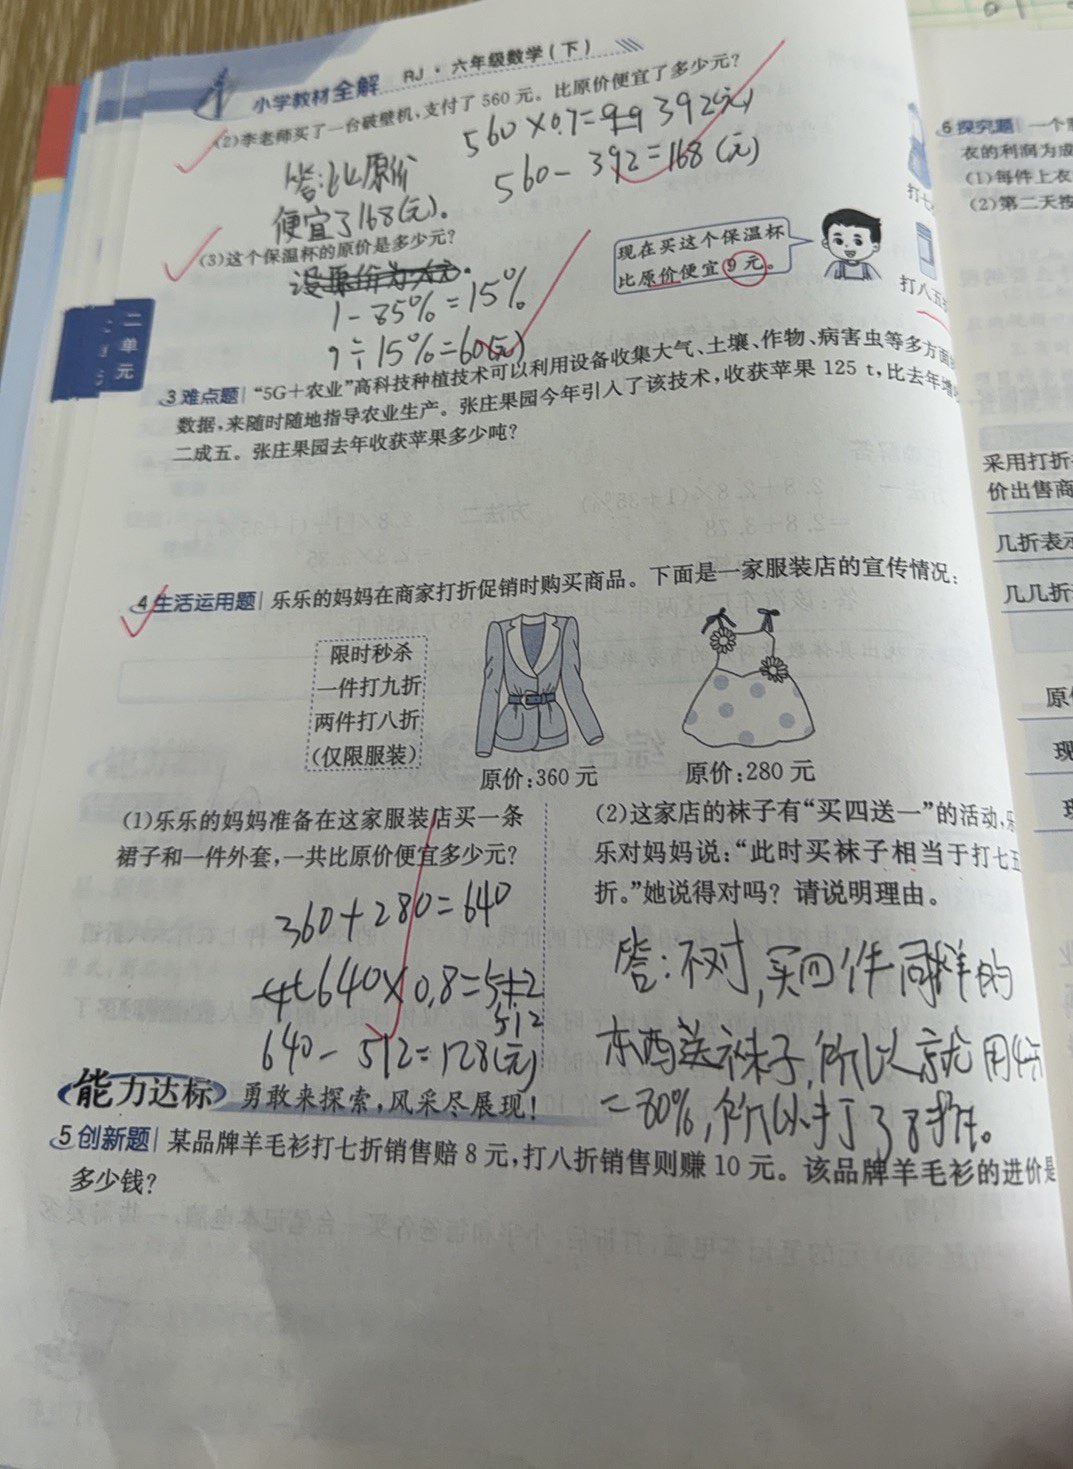 小学教材全解 RJ·六年级数学(下)
(2)李老师买了一台破壁机,支付了560元。比原价便宜了多少元?
560×0.7=
392(元)
560-392=168(元)
答:比原价
便宜了168(元)。
(3)这个保温杯的原价是多少元?
现在买这个保温杯
比原价便宜9元。
1-85%=15%
9÷15%=60(元)
打七
打八五
二单元
3 难点题 “5G+农业”高科技种植技术可以利用设备收集大气、土壤、作物、病害虫等多方面
数据,来随时随地指导农业生产。张庄果园今年引入了该技术,收获苹果125 t,比去年增
二成五。张庄果园去年收获苹果多少吨?
4 生活运用题 乐乐的妈妈在商家打折促销时购买商品。下面是一家服装店的宣传情况:
限时秒杀
一件打九折
两件打八折
(仅限服装)
原价:360元
原价:280元
(1)乐乐的妈妈准备在这家服装店买一条
裙子和一件外套,一共比原价便宜多少元?
360+280=640
640×0.8=
512
640-512=128(元)
(2)这家店的袜子有“买四送一”的活动,乐
乐对妈妈说:“此时买袜子相当于打七五
折。”她说得对吗?请说明理由。
答:不对,买四件同样的
东西送袜子,所以就用4
=80%,所以打了8折。
能力达标 勇敢来探索,风采尽展现!
5 创新题 某品牌羊毛衫打七折销售赔8元,打八折销售则赚10元。该品牌羊毛衫的进价是
多少钱?
6 探究题 一个
衣的利润为成
(1)每件上衣
(2)第二天按
采用打折
价出售商
几折表示
几几折
原
现